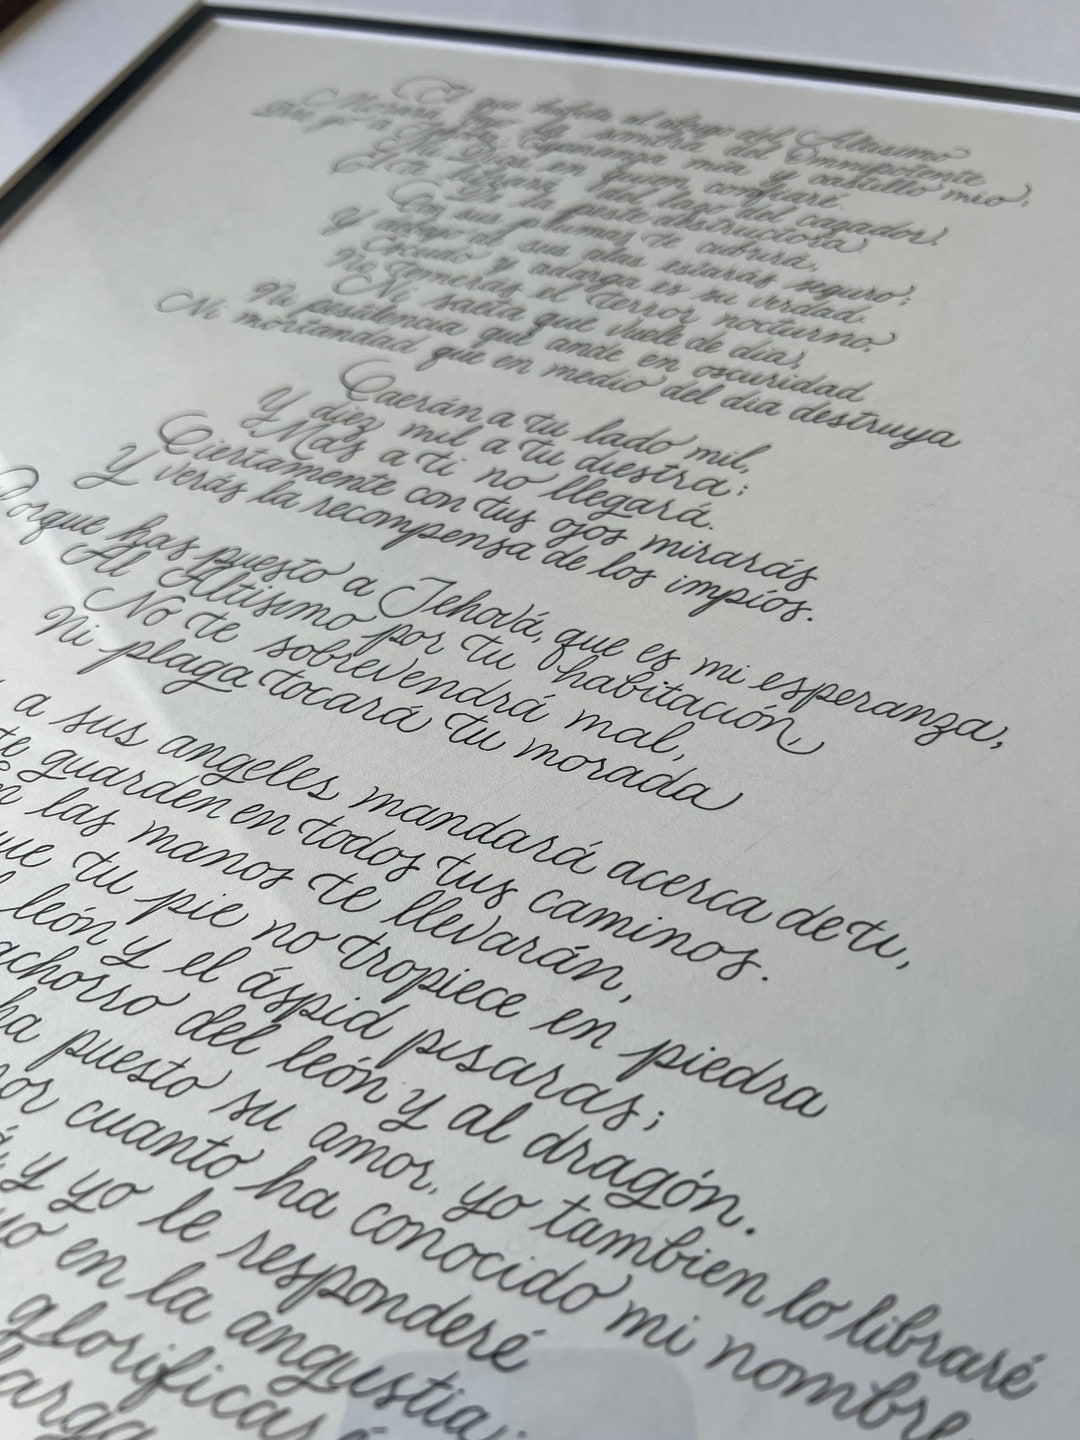 El que habita al abrigo del Altisimo
Morará bajo la sombra del Omnipotente
Diré yo a Jehová: Esperanza mia, y castillo mio;
Mi Dios, en quien confiaré.
El te librará del lazo del cazador,
De la peste destructora
Con sus plumas te cubrirá,
Y debajo de sus alas estarás seguro;
Escudo y adarga es su verdad.
No temerás el terror nocturno,
Ni saeta que vuele de dia,
Ni pestilencia que ande en oscuridad
Ni mortandad que en medio del dia destruya
Caerán a tu lado mil,
Y diez mil a tu diestra;
Mas a ti no llegará.
Ciertamente con tus ojos mirarás
Y verás la recompensa de los impíos.
Porque has puesto a Jehová, que es mi esperanza,
Al Altisimo por tu habitación,
No te sobrevendrá mal,
Ni plaga tocará tu morada
a sus angeles mandará acerca de ti,
te guarden en todos tus caminos.
las manos te llevarán,
tu pie no tropiece en piedra
león y el áspid pisaras;
del león y al dragón.
ha puesto su amor, yo tambien lo libraré
cuanto ha conocido mi nombre
y yo le responderé
yo en la angustia;